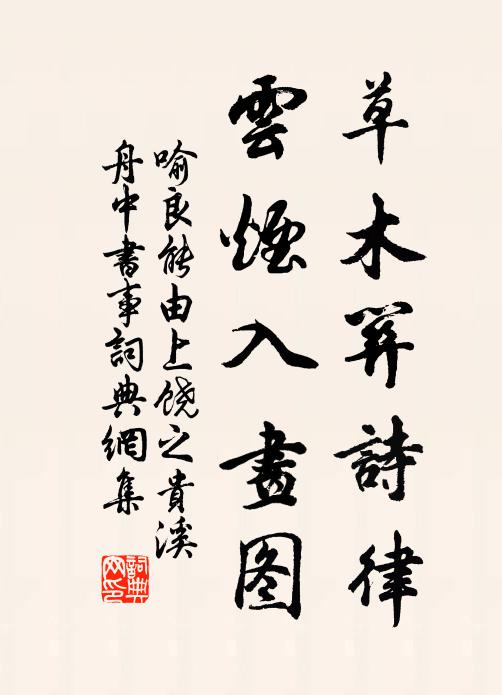 草木詩律
雲煙入畫图
喻良能由上饶之貴溪
舟中書事詞典網集
詞典
网印